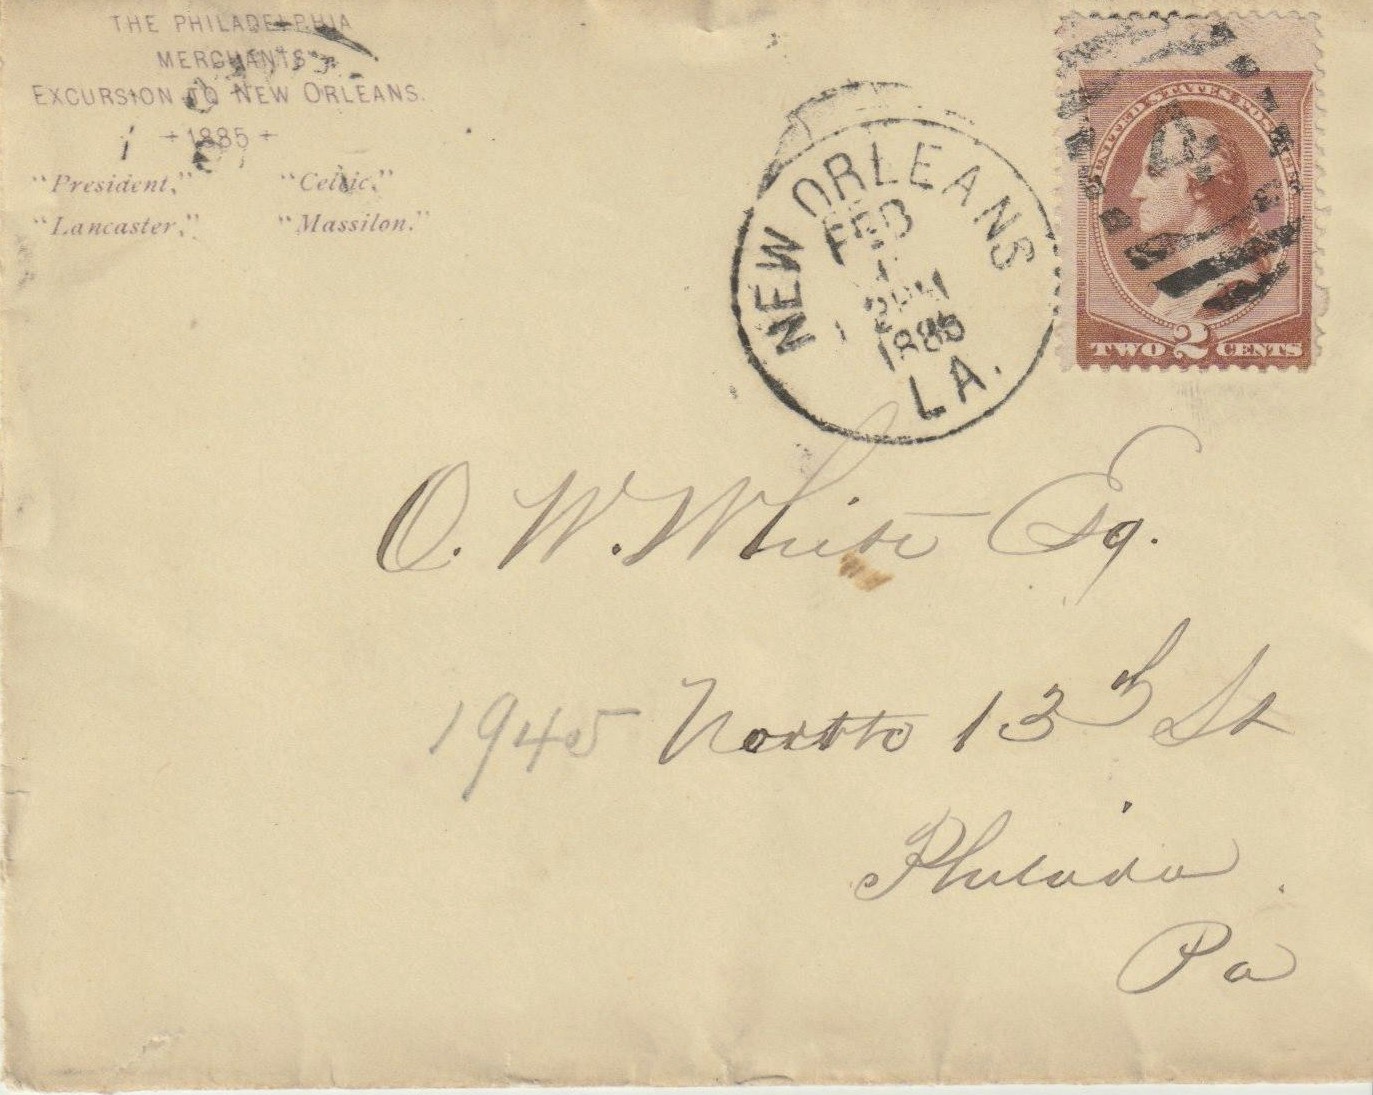 THE PHILADELPHIA
MERCHANTS'
EXCURSION TO NEW ORLEANS.
1885
"President," "Celtic,"
"Lancaster," "Massilon."
NEW ORLEANS
FEB
2PM
1885
LA.
UNITED STATES POSTAGE
4
TWO 2 CENTS
O. W. White Esq.
1945 North 13th St
Philada.
Pa